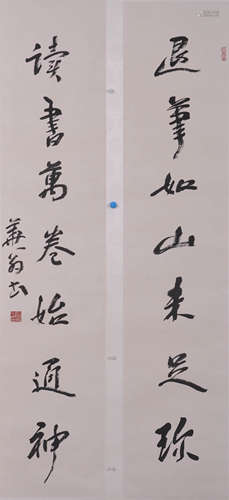 退筆如山未足珍
读書萬卷始通神
蕪翁书